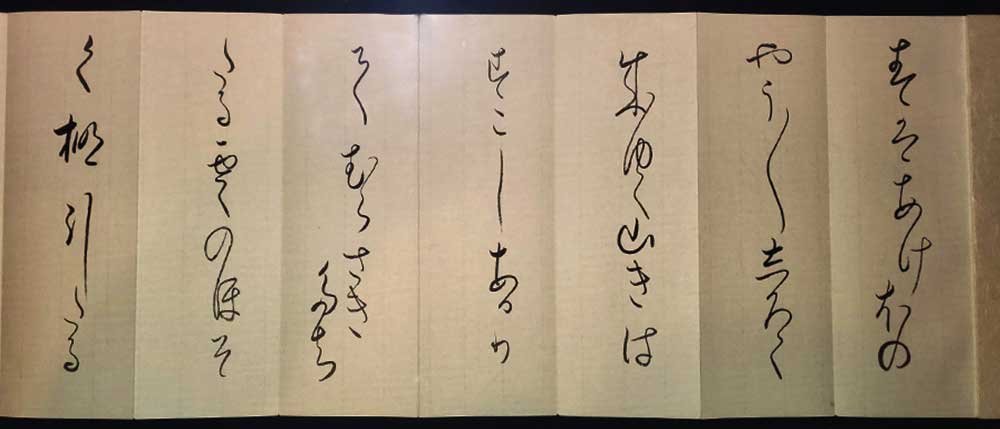 春はあけほの
やう〱しろく
成ゆく山きは
すこしあかり
てむらさきたち
たる雲のほそ
く棚引たる